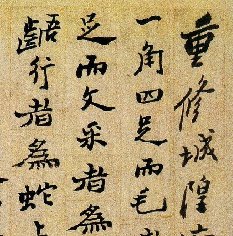 重修城隍
一角四足而毛
足而文采者為
齬行者為蛇上